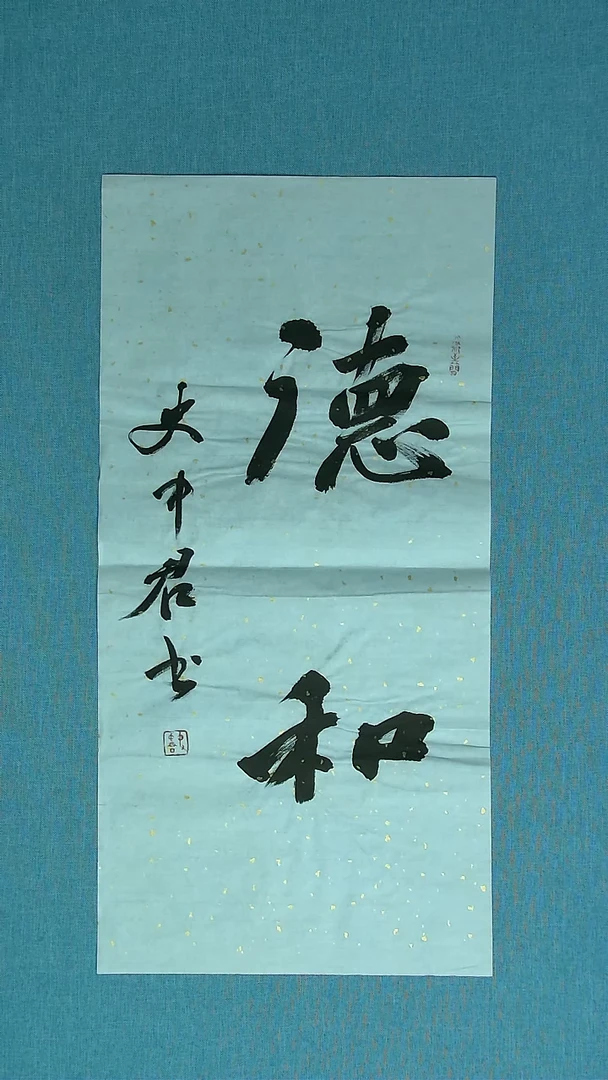 德和
史中君书